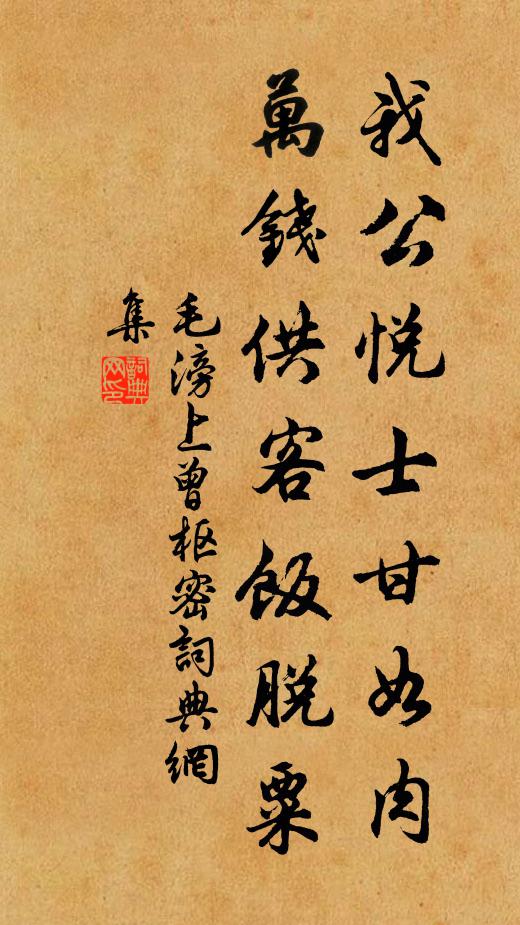 我公悅士甘如肉
萬錢供客飯脫粟
毛滂上曾枢密詞典網
集
詞典網印